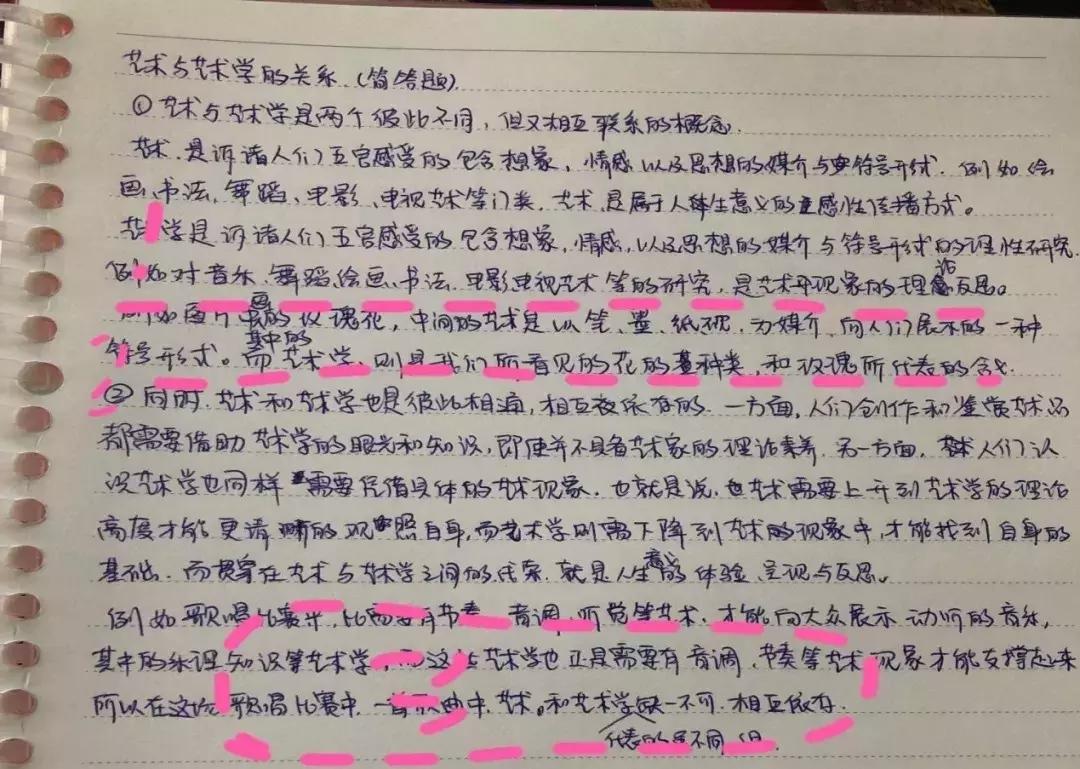 艺术与艺术学的关系(简答题).
①艺术与艺术学是两个彼此不同,但又相互联系的概念.
艺术.是诉诸人们五官感受的包含想象,情感以及思想的媒介与符号形式.例如绘
画、书法,舞蹈、电影、电视艺术等门类.艺术是属于人生意义的直感性传播方式。
艺学是诉诸人们五官感受的包含想象,情感,以及思想的媒介与符号形式的理性研究.
例如对音乐.舞蹈,绘画、书法.电影电视艺术等的研究,是艺术现象的理论反思。
画的玫瑰花,中间的艺术是以笔、墨、纸砚,为媒介.向人们展示的一种
符号形式。而其中的艺术学.则是我们所看见的花的种类,和玫瑰所代表的含义.
②同时.艺术和艺术学也是彼此相通,相互依存的.一方面,人们创作和鉴赏艺术品
都需要借助艺术学的眼光和知识,即使并不具备艺术家的理论素养.另一方面.人们认
识艺术学也同样需要凭借具体的艺术现象.也就是说.艺术需要上升到艺术学的理论
高度才能更清晰的观照自身,而艺术学则需下降到艺术的现象中,才能找到自身的
基础.而贯穿在艺术与艺术学之间的线索.就是人生意义的体验、呈现与反思。
例如歌唱比赛中,比需要有节奏、音调,听觉等艺术.才能向大众展示动听的音乐,
其中的乐理知识等艺术学,这些艺术学也正是需要有音调、节奏等艺术现象才能支撑起来
所以在这次歌唱比赛中.一首歌曲中.艺术。和艺术学缺一不可.相互依存.
代表的是不同